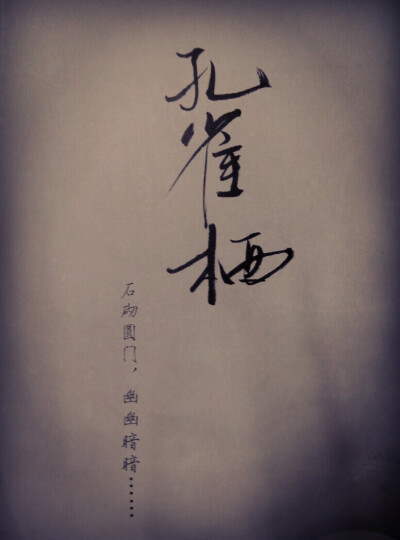 孔雀栖
石砌圆门，幽幽暗暗……